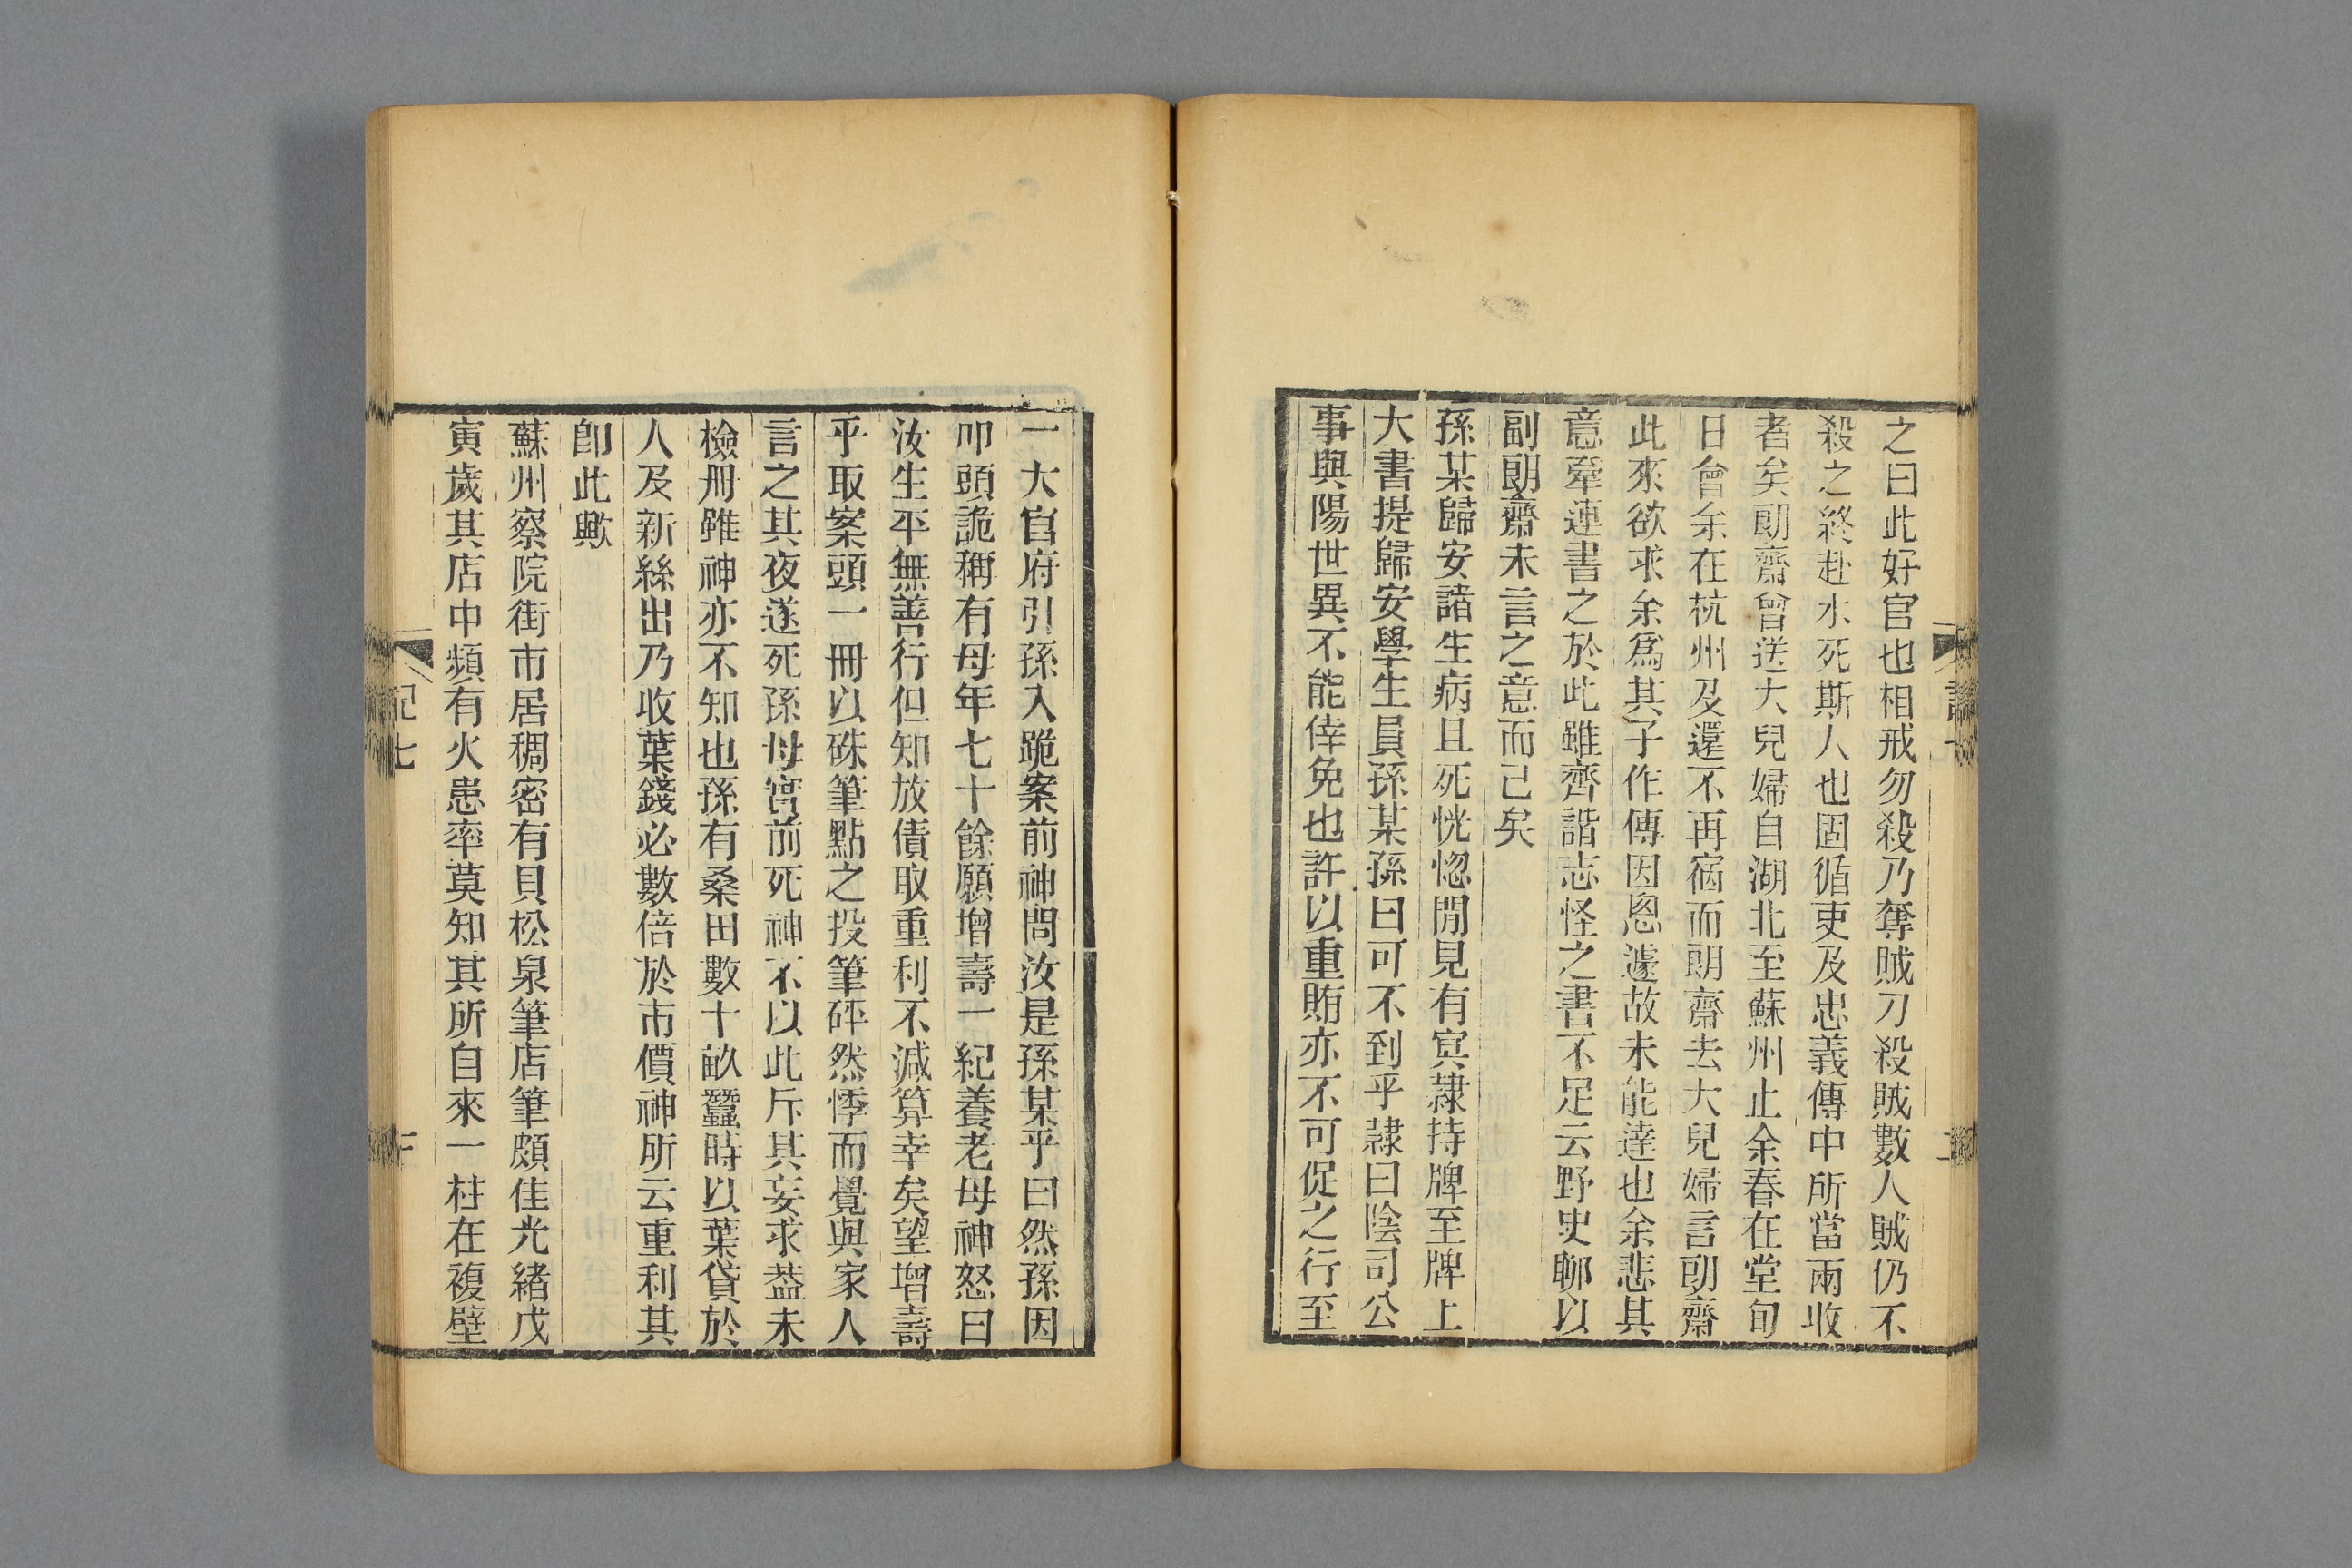 之曰此好官也相戒勿殺乃奪賊刀殺賊數人賊仍不
殺之終赴水死斯人也固循吏及忠義傳中所當兩收
者矣朗齋曾送大兒婦自湖北至蘇州止余春在堂旬
日會余在杭州及還不再宿而朗齋去大兒婦言朗齋
此來欲求余爲其子作傳因恩遽故未能達也余悲其
意牽連書之於此雖齊諧志怪之書不足云野史聊以
副朗齋未言之意而已矣
孫某歸安諸生病且死恍惚閒見有冥隷持牌至牌上
大書提歸安學生員孫某孫曰可不到乎隷曰陰司公
事與陽世異不能倖免也許以重賄亦不可促之行至
一大官府引孫入跪案前神問汝是孫某乎曰然孫因
叩頭詭稱有母年七十餘願增壽一紀養老母神怒曰
汝生平無善行但知放債取重利不減算幸矣望增壽
乎取案頭一冊以硃筆點之投筆砰然悸而覺與家人
言之其夜遂死孫母實前死神不以此斥其妄求葢未
檢冊雖神亦不知也孫有桑田數十畝蠶時以葉貸於
人及新絲出乃收葉錢必數倍於市價神所云重利其
卽此歟
蘇州察院街市居稠密有貝松泉筆店筆頗佳光緒戊
寅歲其店中頻有火患率莫知其所自來一柱在複壁
記七